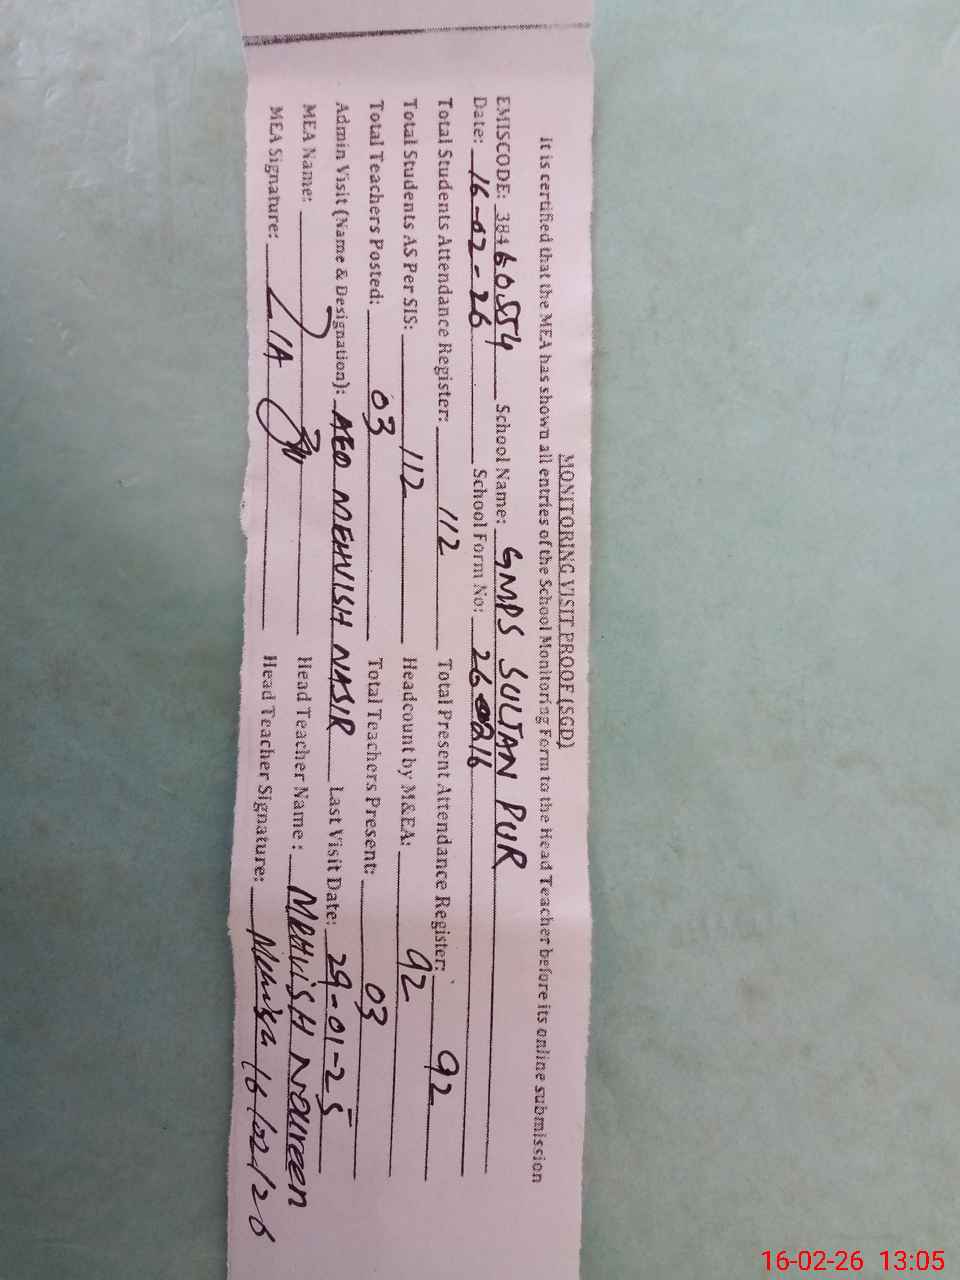 MONITORING VISIT PROOF (SGD)
It is certified that the MEA has shown all entries of the School Monitoring Form to the Head Teacher before its online submission
EMISCODE: 38460554 School Name: GMPS SULTAN PUR
Date: 16-02-26 School Form No: 260216
Total Students Attendance Register: 112 Total Present Attendance Register: 92
Total Students AS Per SIS: 112 Headcount by M&EA: 92
Total Teachers Posted: 03 Total Teachers Present: 03
Admin Visit (Name & Designation): AEO MEHVISH NASIR Last Visit Date: 29-01-25
MEA Name: Head Teacher Name: MEHVISH NOUREEN
MEA Signature: Head Teacher Signature: 16/02/26
16-02-26 13:05